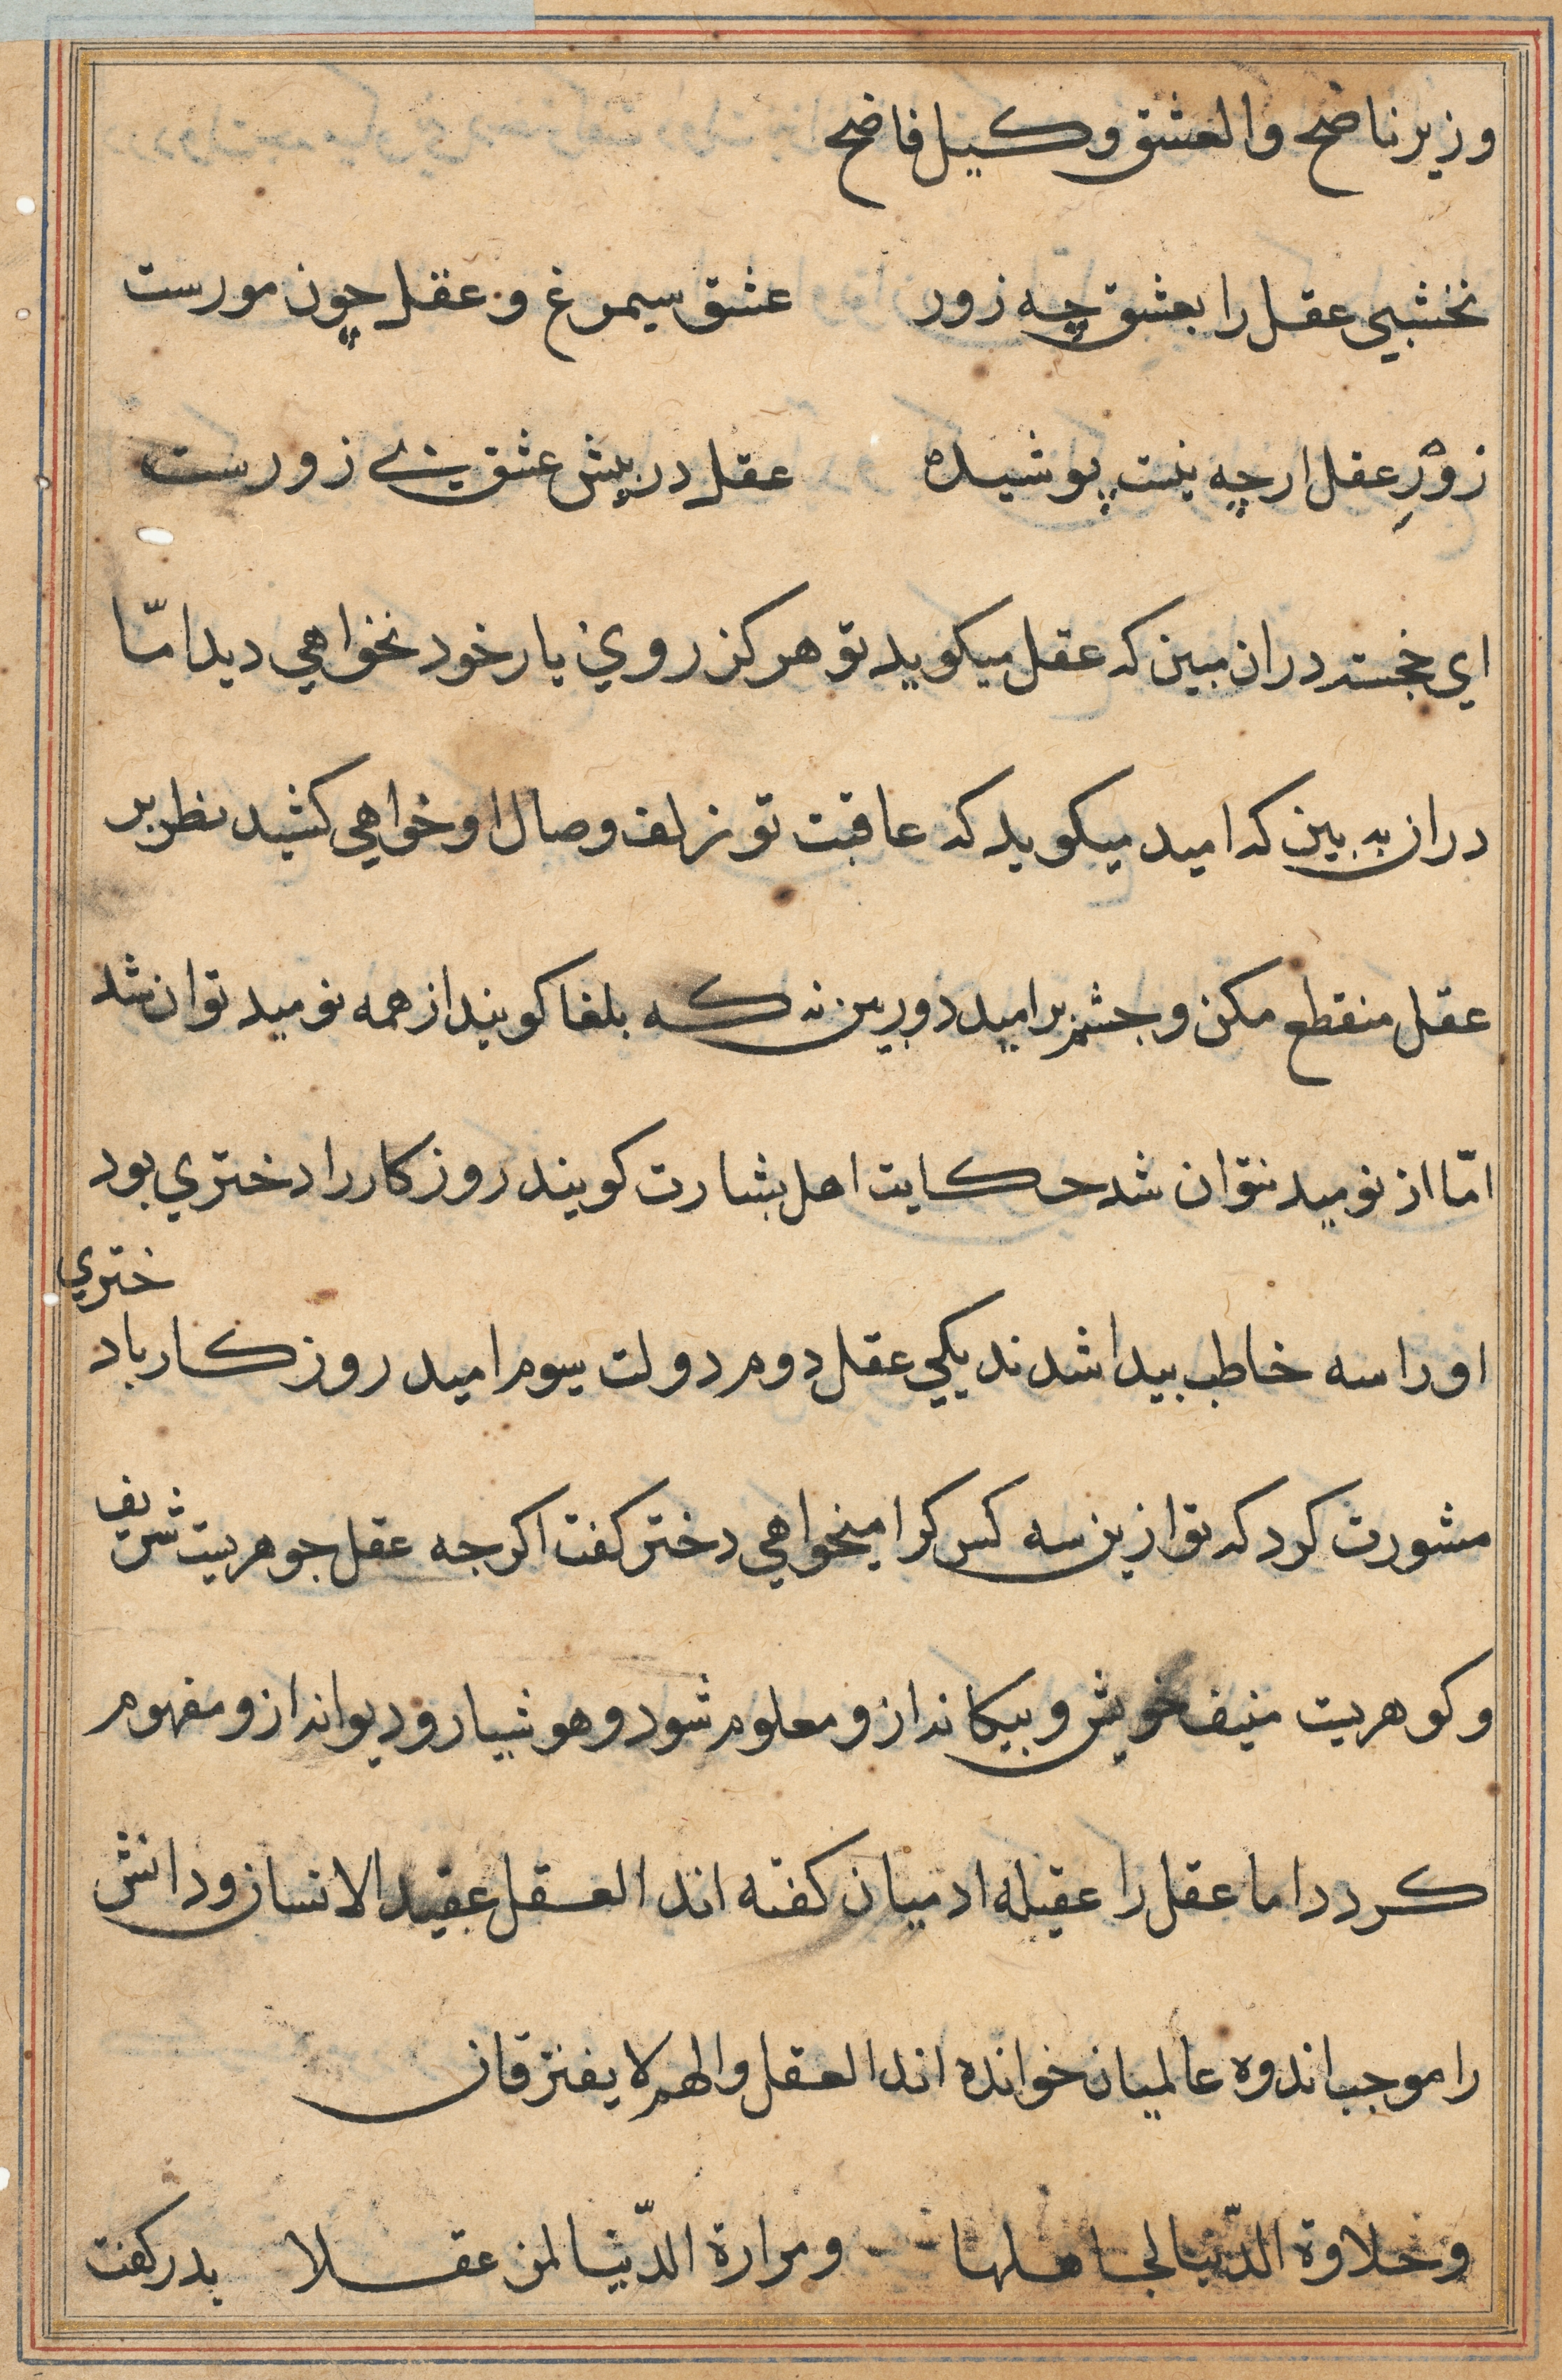 وزیر ناضح والعشق وکیل فاضح
نخشبي عقل را بعشق چه زور عشق سیمرغ و عقل چون مورست
زورِ عقل ارچه نیست پوشیده عقل در پیش عشق بی زورست
اي خجسته دران مبین که عقل میکوید تو هرکز روي یار خود نخواهي دید امّا
دران به بین که امید میکوید که عاقبت تو زلف وصال او خواهي کشید نظر بر
عقل منقطع مکن و جشم بر امید دوربین نه که بلغا کویند از همه نومید توان شد
امّا از نومید نتوان شد حکایت اهل بشارت کویند روزکار را دختري بود
ختري
او را سه خاطب بیدا شدند یکي عقل دوم دولت سیوم امید روزکار باد
مشورت کرد که تو ازین سه کس کرا میخواهي دختر کفت اکرجه عقل جوهریت شریف
و کوهریت منیف خویش و بیکانه ازو معلوم شود و هوشیار و دیوانه ازو مفهوم
کردد اما عقل را عقیله ادمیان کفته اند العقل عقید الانسان و دانش
را موجب اندوه عالمیان خوانده اند العقل والهم لا یفترقان
وحلاوة الدّنیا لجاهلها ومرارة الدّنیا لمن عقلا پدر کفت